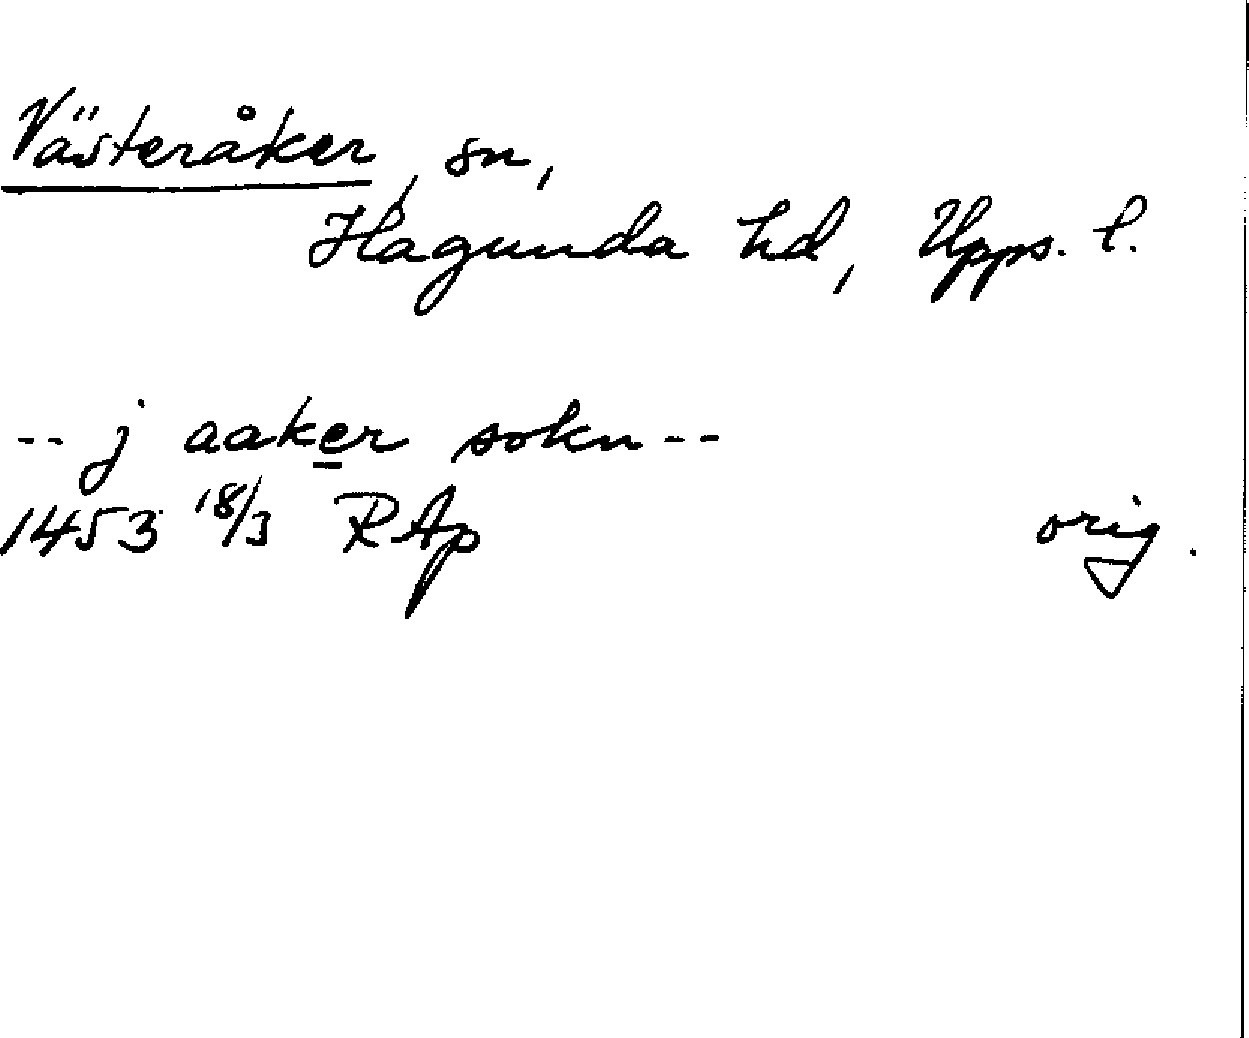 Västeråker, sn,
Hagunda hd, Upps. l.
-- j aaker sokn --
1453 18/3 RAp orig.